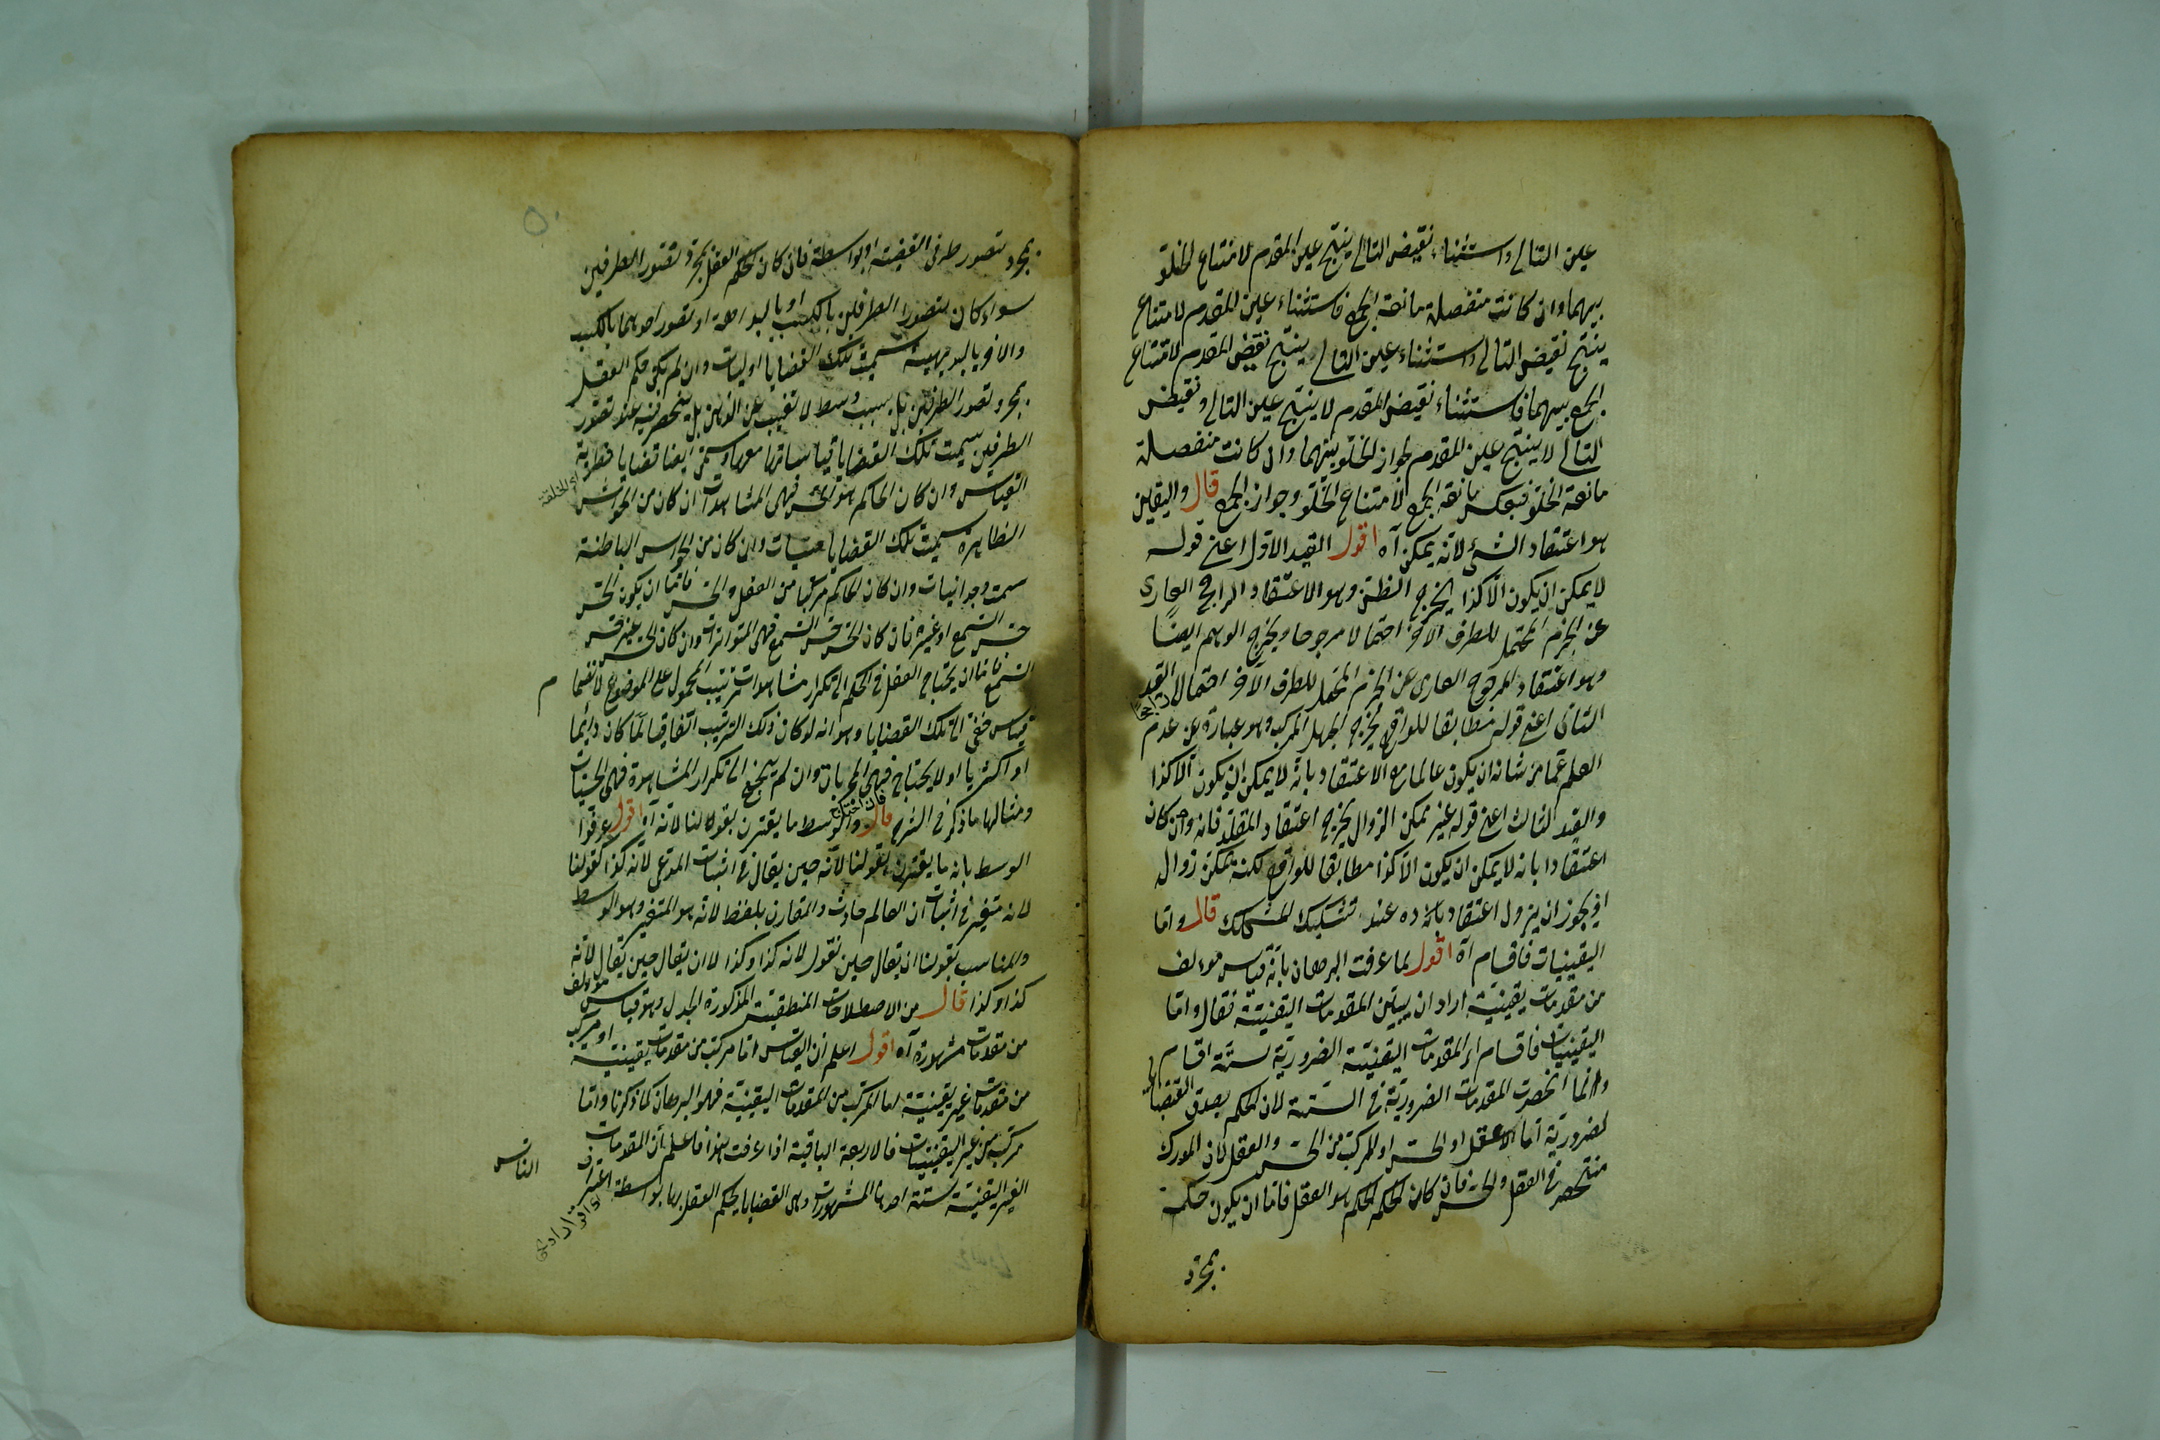 عين التالى واستثناء نقيض التالى ينتج عين المقدم لامتناع الخلو
بينهما وان كانت منفصلة مانعة الجمع فاستثناء عين المقدم لامتناع
ينتج نقيض التالى واستثناء عين التالى ينتج نقيض المقدم لامتناع
الجمع بينهما فاستثناء نقيض المقدم لا ينتج عين التالى ونقيض
التالى لا ينتج عين المقدم لجواز الخلو بينهما وان كانت منفصلة
مانعة الخلو فبعكس مانعة الجمع لامتناع الخلو وجواز الجمع قال واليقين
هو اعتقاد الشئ لانه يمكن آه اقول القيد الاول اعنى قوله
لا يمكن ان يكون الا كذا يخرج الظن وهو الاعتقاد الراجح العارى
عن الجزم المحتمل للطرف الآخر احتمالا مرجوحا ويخرج الوهم ايضا
وهو اعتقاد المرجوح العارى عن الجزم المحتمل للطرف الآخر احتمالا راجحا القيد
الثانى اعنى قوله مطابقا للواقع يخرج الجهل المركب وهو عبارة عن عدم
العلم عما من شانه ان يكون عالما مع الاعتقاد بانه لا يمكن ان يكون الا كذا
والقيد الثالث اعنى قوله غير ممكن الزوال يخرج اعتقاد المقلد فانه وان كان
اعتقادا بانه لا يمكن ان يكون الا كذا مطابقا للواقع لكنه يمكن زوال
اذ يجوز ان يزول اعتقاد عند تشكيك المشكك قال واما
اليقينيات فاقسام آه اقول لما عرفت البرهان بانه قياس مؤلف
من مقدمات يقينية اراد ان يبين المقدمات اليقينية فقال واما
اليقينيات فاقسام اى المقدمات اليقينية الضرورية ستة اقسام
وانما انحصرت المقدمات الضرورية فى الستة لان الحكم بصدق القضايا
لضرورية اما العقل او الحس او المركب من الحس والعقل لان المدرك
منحصر فى العقل والحس فان كان الحكم هو العقل فاما ان يكون حكمه
بمجرد
بمجرد تصور طرفى القضية او بواسطة فان كان الحكم العقل بمجرد تصور الطرفين
سواء كان تصور الطرفين بالكسب او بالبداهة او تصور احدهما بالكسب
والآخر بالبديهية سميت تلك القضايا اوليات وان لم يكن حكم العقل
بمجرد تصور الطرفين بل بسبب وسط لا تغيب عن الذهن بل ينحصر فيه عند تصور
الطرفين سميت تلك القضايا قياساتها معها وسمى ايضا قضايا فطرية
اى الخلقة
القياس وان كان الحاكم هو الحس فهى المشاهدات ان كان من الحواس
الظاهرة سميت تلك القضايا حسيات وان كان من الحواس الباطنة
سمت وجدانيات وان كان الحاكم مركبا من العقل والحس فاما ان يكون الحس
حس السمع او غيره فان كان الحس حس السمع فهى المتواترات وان كان الحس غير حس
السمع فاما ان يحتاج العقل فى الحكم الى تكرار مشاهدات ترتيب المحمول على الموضوع لانضمام
قياس خفى الى تلك القضايا وهو انه لو كان ذلك الترتيب اتفاقيا لما كان دائما
او اكثريا او لا يحتاج فهى المجربات وان لم يحتج الى تكرار المشاهدة فهى الحدسيات
ومثالها ما ذكر فى الشرح قال والوسط ما يقترن بقولنا لانه آه اقول عرفوا
الوسط بانه ما يقترن بقولنا لانه حين يقال فى اثبات المدعى لانه كذا كقولنا
لانه متغير فى اثبات ان العالم حادث والمقارن بلفظ لانه هو المتغير وهو الوسط
والمناسب بقولنا ان يقال حين نقول لانه كذا وكذا لا ان يقال حين يقال لانه
كذا وكذا قال من الاصطلاحات المنطقية المذكورة الجدل وهو قياس مؤلف
من مقدمات مشهورة آه اقول اعلم ان القياس اما مركب من مقدمات يقينية او مركب
من مقدمات غير يقينية اما المركب من المقدمات اليقينية فهو البرهان كما ذكرنا واما
مركب من غير اليقينيات فالاربعة الباقية اذا عرفت هذا فاعلم بأن المقدمات
الغير اليقينية ستة احدها المشهورات وهى القضايا يحكم العقل بها بواسطة اعتراف
الناس